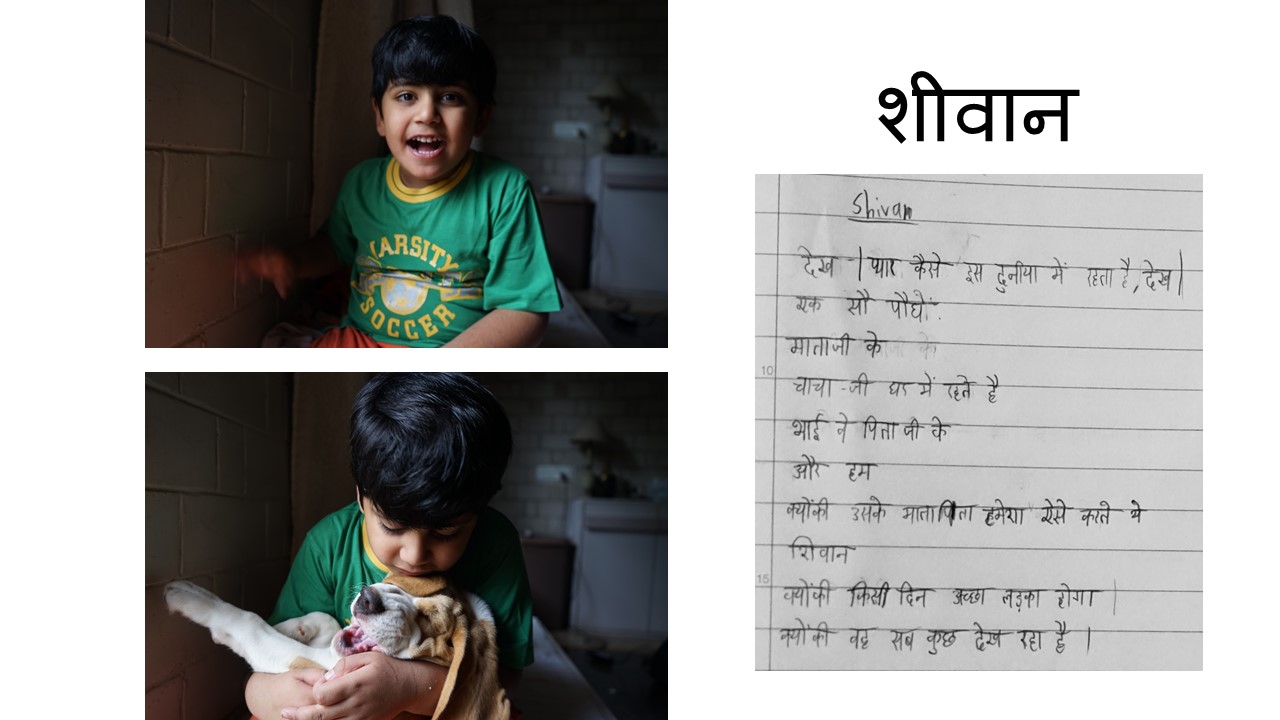 VARSITY
SOCCER
शीवान
Shivam
देख । प्यार कैसे इस दुनीया में रहता है, देख।
एक सौ पौधों.
माताजी के
10
चाचा-जी घर में रहते है
भाई ने पिताजी के
और हम
क्योंकी उसके मातापिता हमेशा ऐसे करते थे
शिवान
15
क्योंकी किसी दिन अच्छा लड़का होगा ।
क्योंकी वह सब कुछ देख रहा है ।